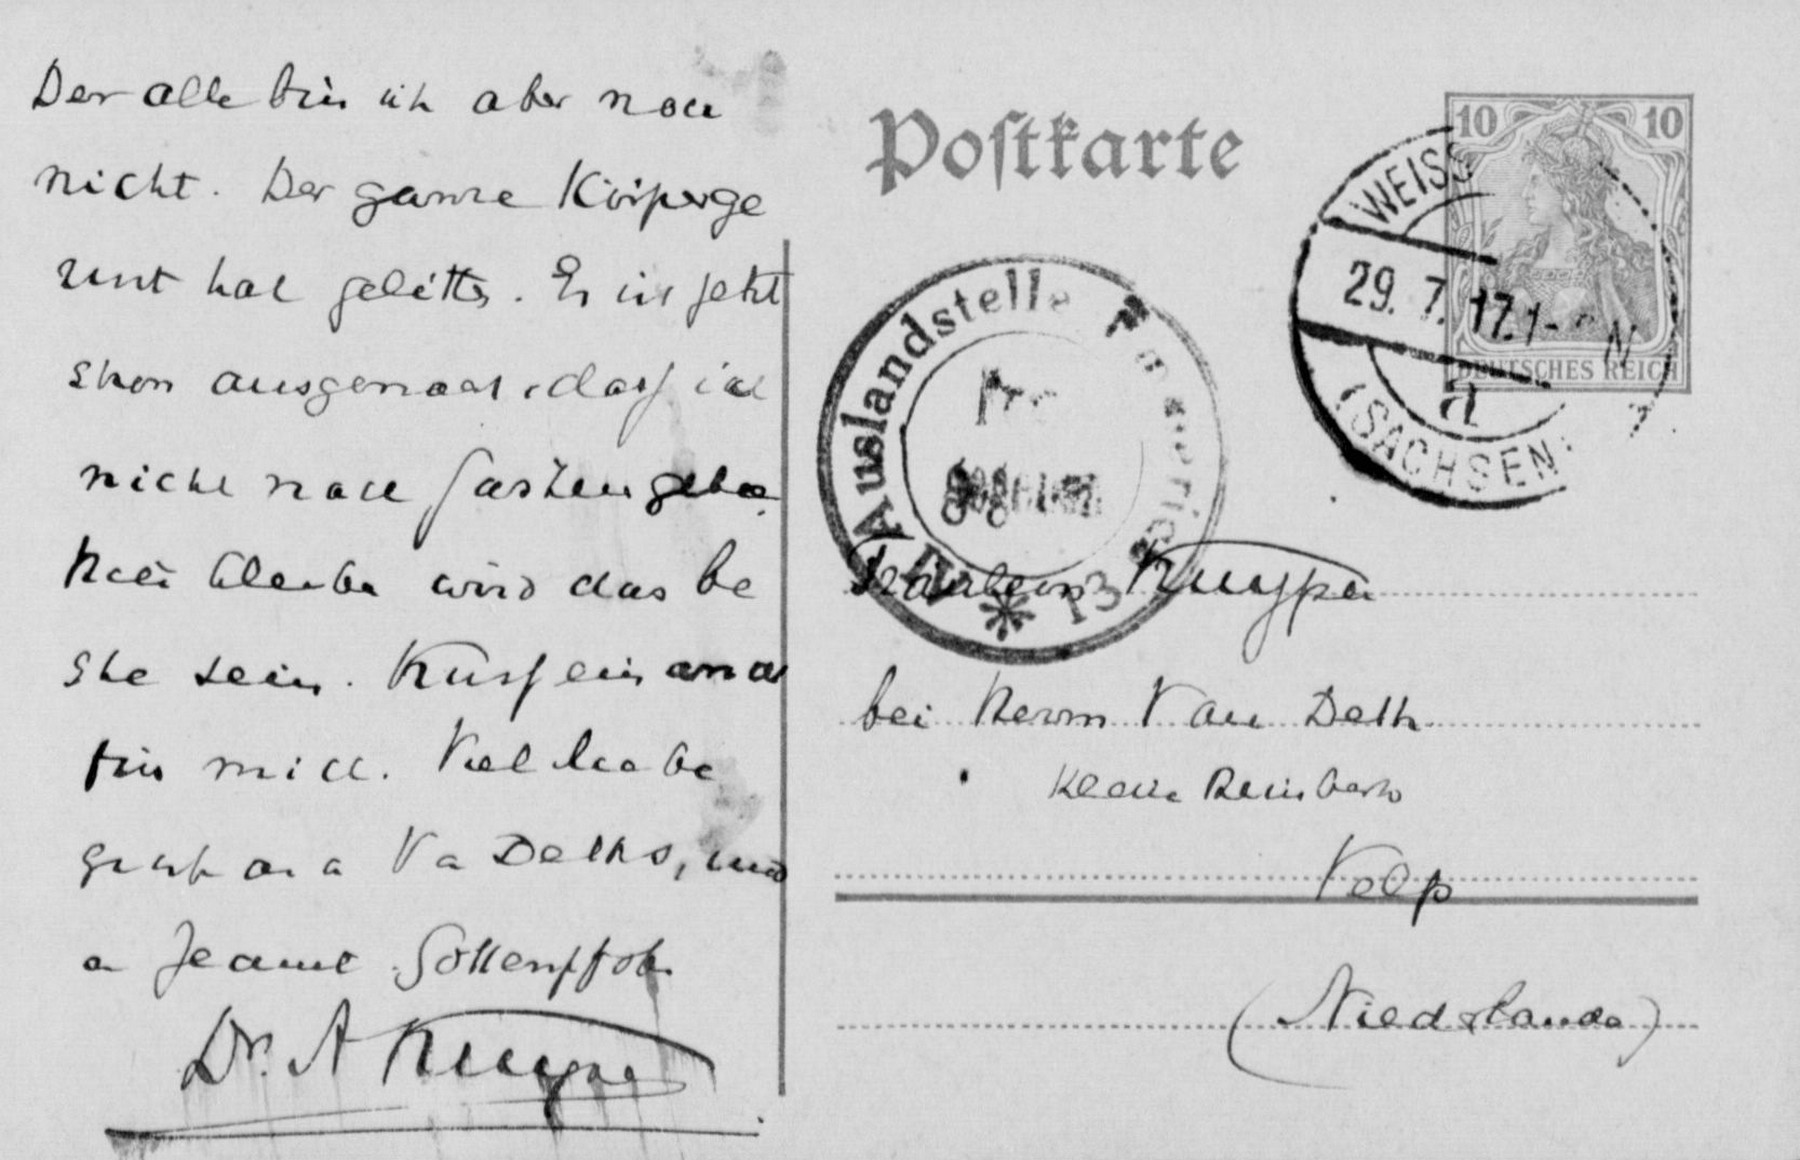 Der alte bin ich aber noch
nicht. Der ganze Körperge
zust hat gelitten. Es ist jetzt
schon ausgemacht, dass ich
nicht nach Gastein gehe.
Kein wird das be
ste sein. Küss einander
für mich. Viel liebe
grüsse an Va Delhs, und
a Jeanne Gottempfohl.
Dr. A Kuyper
Postkarte
10 10
DEUTSCHES REICH
WEISS
29. 7. 17. 1- N
a
(SACHSEN)
Auslandstelle
13
Fräulein Kuyper
bei Herrn Van Delh
Kleine Reinbach
Velp
(Niederlande)